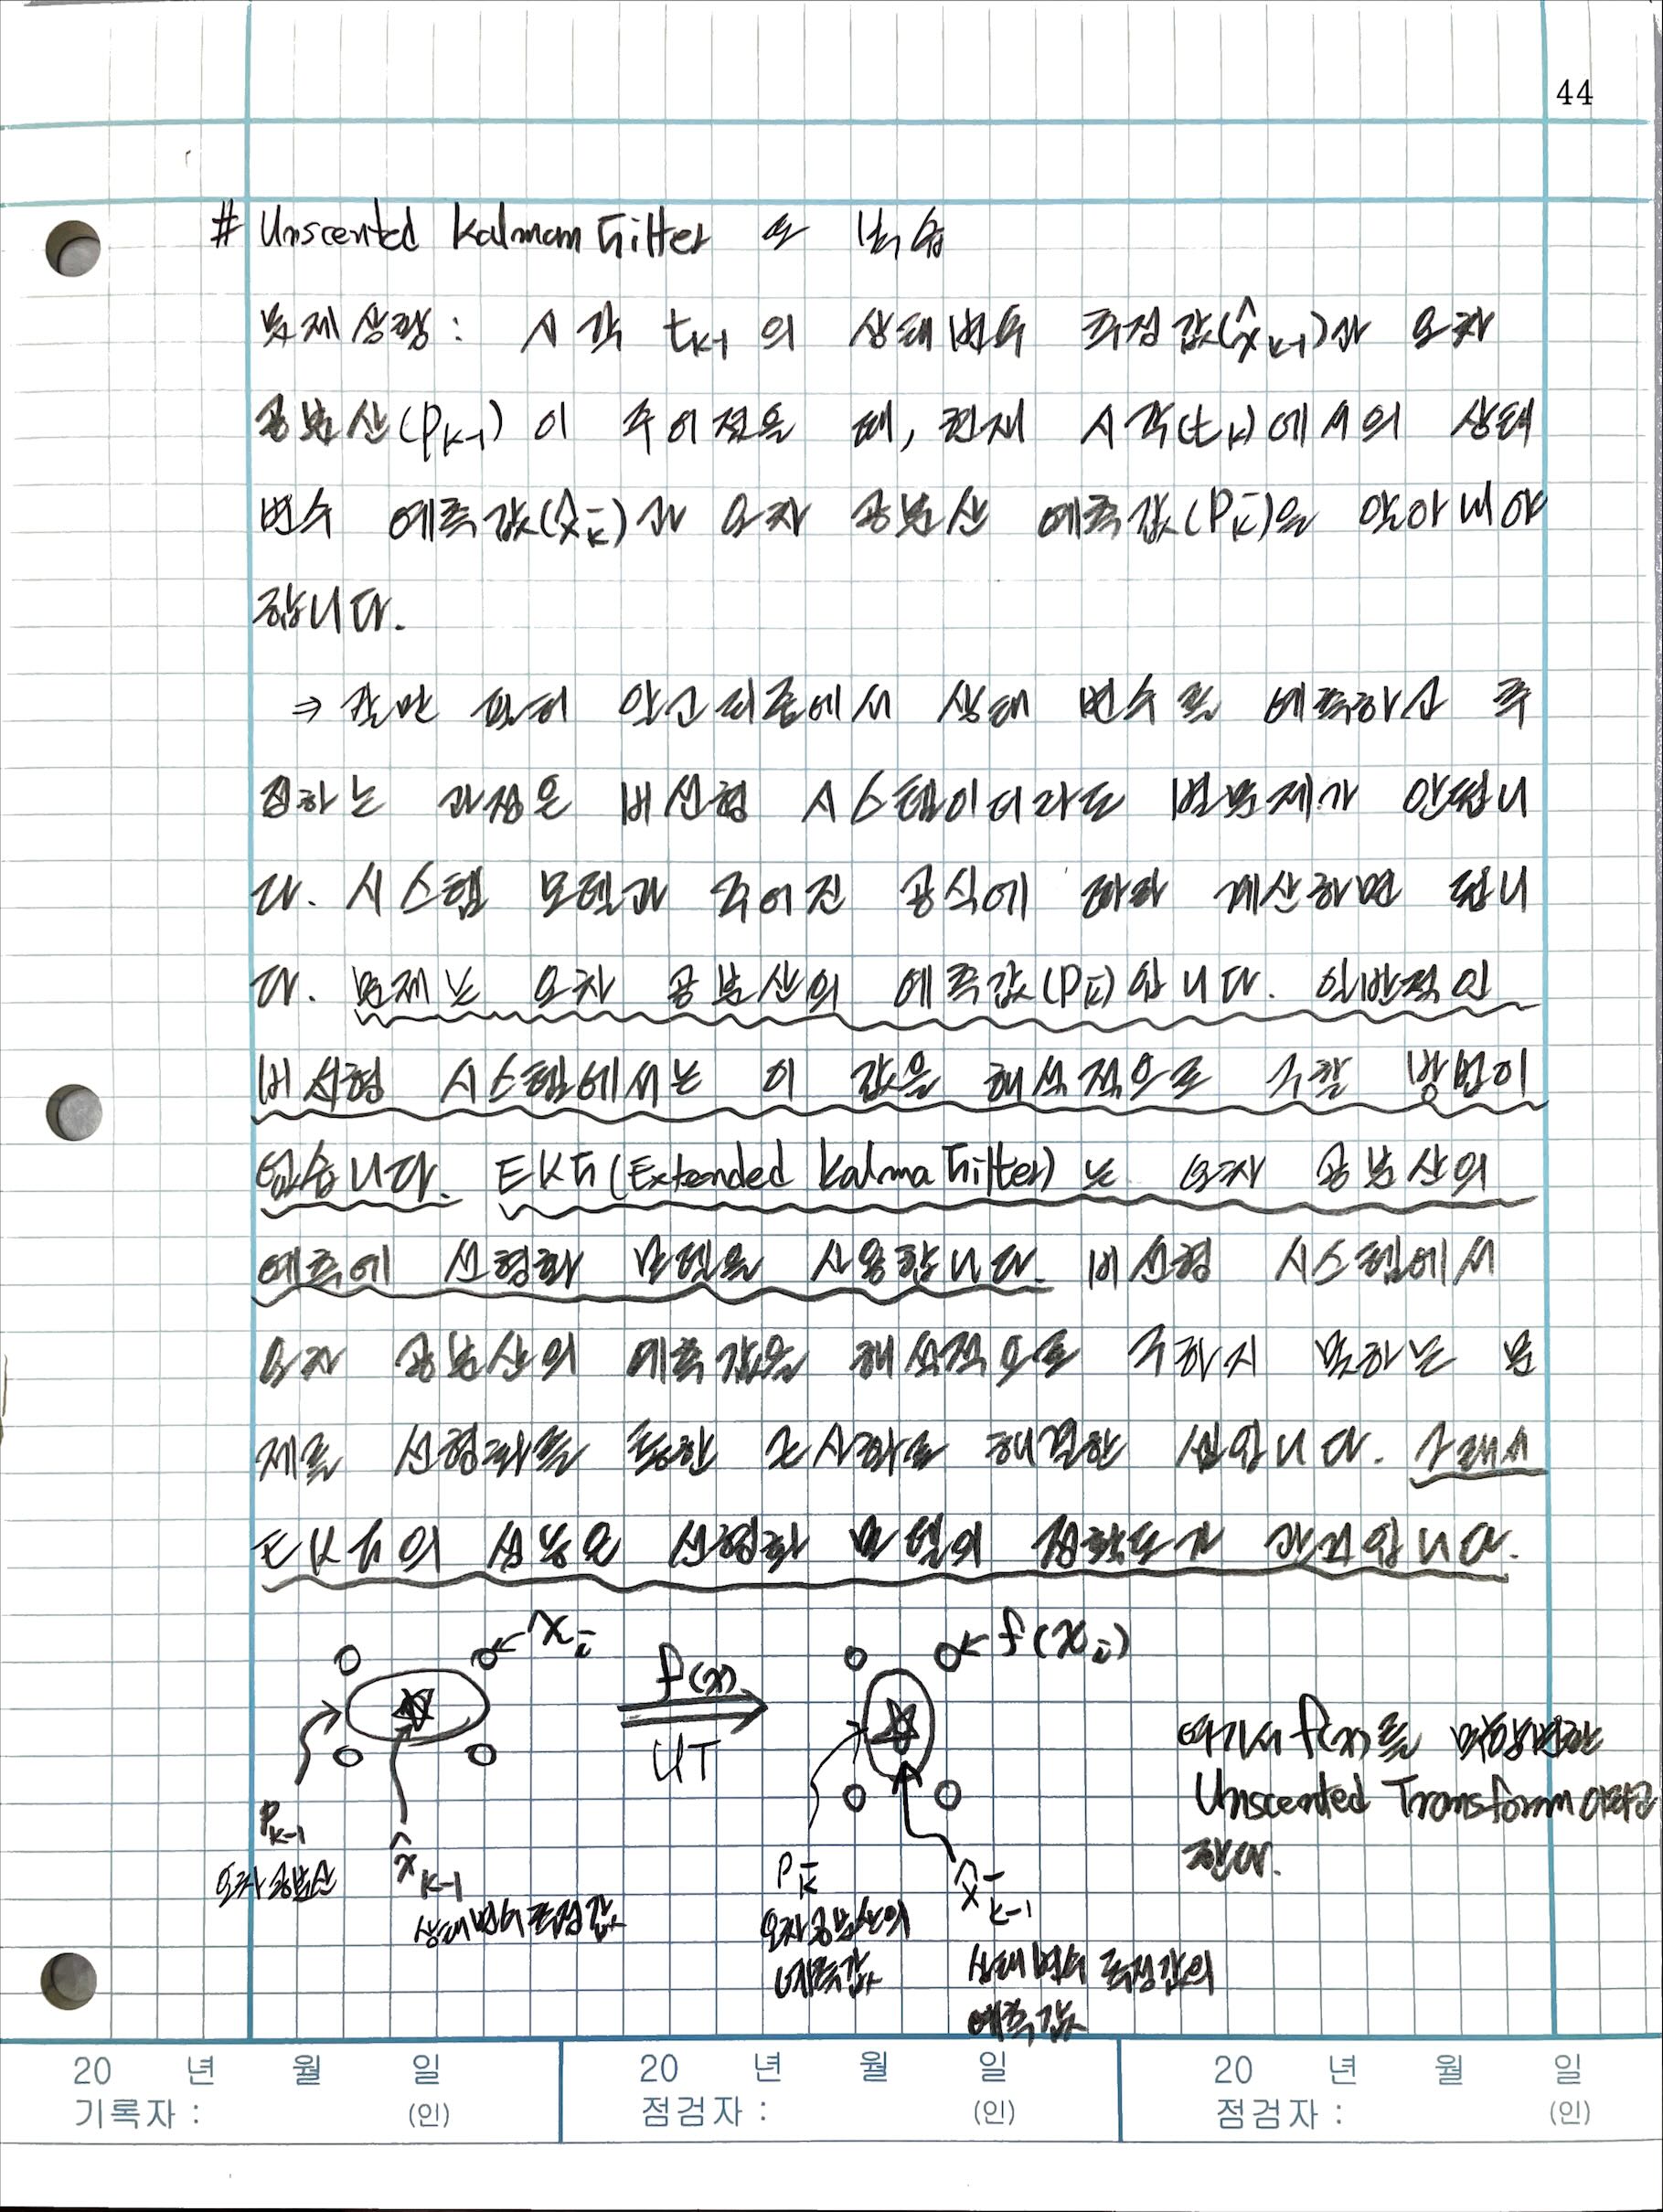 44
# Unscented Kalman Filter 로 복습
문제상황 : 시각 tk-1 의 상태변수 추정값(x̂k-1)과 오차
공분산(Pk-1) 이 주어졌을 때, 현재 시각(tk)에서의 상태
변수 예측값(x̂k⁻)과 오차 공분산 예측값(Pk⁻)을 알아내야
합니다.
⇒ 칼만 필터 알고리즘에서 상태 변수를 예측하고 추
정하는 과정은 비선형 시스템이더라도 별문제가 안됩니
다. 시스템 모델과 주어진 공식에 따라 계산하면 됩니
다. 문제는 오차 공분산의 예측값(Pk⁻)입니다. 일반적인
비선형 시스템에서는 이 값을 해석적으로 구할 방법이
없습니다. EKF(Extended Kalma Filter)는 오차 공분산의
예측에 선형화 모델을 사용합니다. 비선형 시스템에서
오차 공분산의 예측값을 해석적으로 구하지 못하는 문
제를 선형화를 통한 근사화로 해결한 셈입니다. 그래서
EKF의 성능은 선형화 모델의 정확도가 관건입니다.
xi
f(x)
UT
f(xi)
여기서 f(x)를
Unscented Transform 이라고
한다.
Pk-1
오차 공분산
x̂k-1
상태변수 추정값
Pk⁻
오차공분산의
예측값
x̂⁻k-1
상태 변수 추정값의
예측값
20 년 월 일
기록자 : (인)
20 년 월 일
점검자 : (인)
20 년 월 일
점검자 : (인)